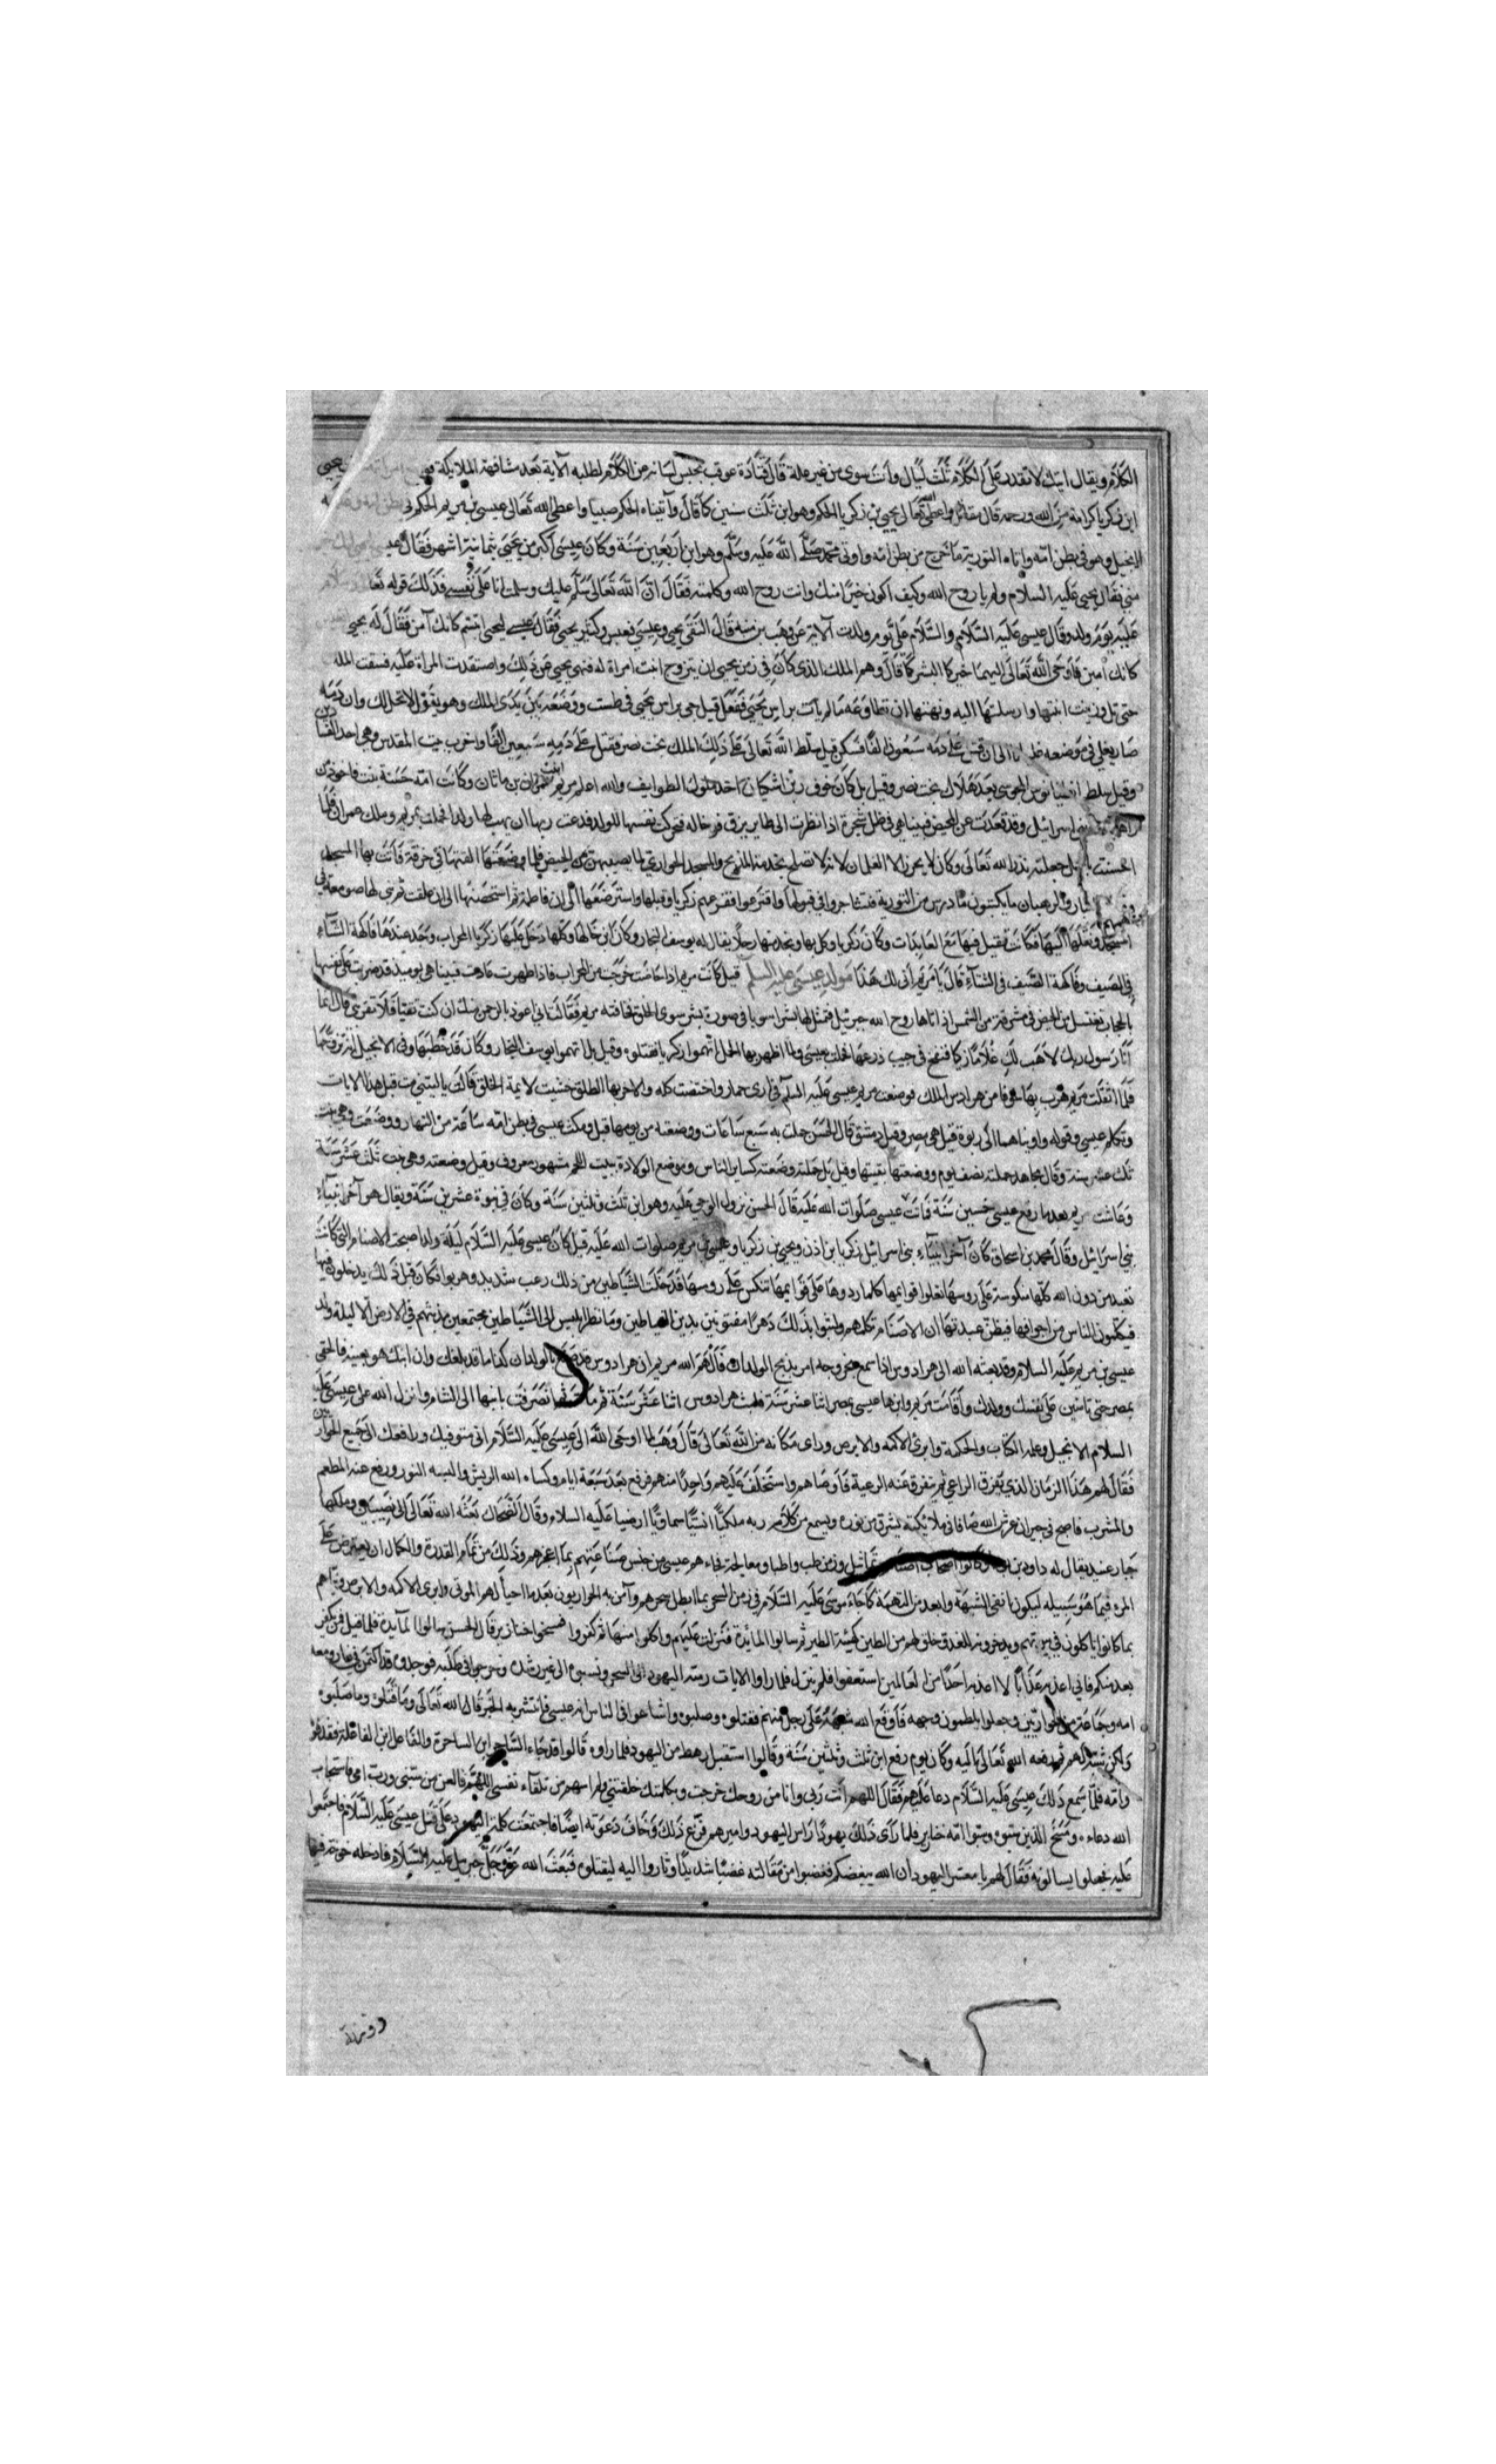 الكلام ويقال ايتك لا تقدر على الكلام ثلث ليال وانت سوى من غير علة قال قتادة عوقب بحبس لسانه من الكلام لطلبه الآية بعد مشافهة الملايكة
ابن زكريا كرامة من الله ورحمة قال مقاتل واعطى الله تعالى يحيى بن زكريا الحكم وهو ابن ثلث سنين كما قال وآتيناه الحكم صبيا واعطى الله تعالى عيسى بن مريم الحكم في بطن امه
الانجيل وهو في بطن امه واتاه التورية ما خرج من بطن امه واوتى محمد صلى الله عليه وسلم وهو ابن اربعين سنة وكان عيسى اكبر من يحيى بثمانية اشهر فقال
مني فقال يحيى عليه السلام ولم يا روح الله وكيف اكون خيرا منك وانت روح الله وكلمته فقال ان الله تعالى سلم عليك وسلمت انا على نفسي فذلك قوله تعالى
عليه يوم ولد وقال عيسى عليه السلام والسلام على يوم ولدت الآية عن وهب بن منبه قال التقى يحيى وعيسى فعبس وكشر يحيى فقال عيسى ليحيى ابتسم كانك آمن فقال له يحيى
كانك آمين فاوحى الله تعالى اليهما خيركما البشر كما قال وهم الملك الذى كان في زمن يحيى ان يتزوج ابنت امراة له فنهى يحيى عن ذلك واستقدت المراة عليه فسقت الملك
حتى ثمل وزينت ابنتها وارسلتها اليه ونهتها ان تطاوعه ما لم يات براس يحيى ففعل قيل جى براس يحيى في طست ووضعه بين يدى الملك وهو يقول لا تحل لك وان دمه
صار يغلي في موضعه الى ان قتل على دمه سبعون الفا فسكن قيل سلط الله تعالى على ذلك الملك بخت نصر فقتل على دمه سبعين الفا واخرب بيت المقدس وهى احد
وقيل سلط المجوسى بعد هلاك بخت نصر وقيل بل كان احد ملوك الطوايف والله اعلم مريم ابنت عمران بن ماثان وكانت امه حسنة بنت فاخوذ
بنى اسرائيل وقد قعدت عن المحيض فبينا هي في ظل شجرة اذا نظرت الى طاير يزق فرخا له فتحركت نفسها للولد فدعت ربها ان يهب لها ولدا فحملت بمريم وهلك عمران فلما
احسنت بالحمل جعلته نذرا لله تعالى وكان لا يحرر الا الغلمان لانه لا تصلح بخدمة المذبح والمسجد الجوارى لما يصيبهن من الحيض فلما وضعتها لفتها في خرقة فاتت بها المسجد
الاحبار والرهبان ما يكتبون ما درس من التورية فتشاجروا في قبولها واقترعوا فقرعهم زكريا وقبلها واسترضعها الى ان فاطمة ثم استحضنها الى ان بلغت ثم بنى لها صومعة في
المسجد ونقلها اليها فكانت تقيل فيها مع العابدات وكان زكريا وكل بها وبخدمتها رجلا يقال له يوسف النجار وكان ابن خالها وكلما دخل عليها زكريا المحراب وجد عندها فاكهة الشتاء
في الصيف وفاكهة الصيف في الشتاء قال يا مريم اني لك هذا مولد عيسى عليه السلم قيل كانت مريم اذا حاضت خرجت من المحراب فاذا طهرت عادت فبينا هى يوميذ قد ضربت على نفسها
بالحجاب تغتسل من الحيض في مشرقة من الشمس اذ اتاها روح الله جبرئيل فتمثل لها بشرا سويا في صورة بشر سوى الخلق فخافته مريم فقالت اني اعوذ بالرحمن منك ان كنت تقيا فلا تقربنى قال انما
انا رسول ربك لاهب لك غلاما زكيا فنفخ في جيب درعها فحملت بعيسى ولما اظهر بها الحمل اتهموا زكريا فقتلوه وقيل بل اتهموا يوسف النجار وكان قد خطبها وفي الانجيل انه تزوجها
فلما اثقلت مريم هرب بها خوفا من هرادس الملك فوضعت مريم عيسى عليه السلم في ارى حمار واحتضنت كله والاخر بها الطلق خشيت لايمة الخلق فقالت يا ليتنى مت قبل هذا الايات
وتكلم عيسى وقوله واويناهما الى ربوة قيل هى مصر وقيل دمشق قال الحسن حملت به سبع ساعات ووضعته من يومها قيل ومكث عيسى في بطن امه ساعة من النهار ووضعت وهى بنت
ثلث عشر سنة وقال مجاهد حملته نصف يوم ووضعتها بقيتها وقيل بل حملته وضعته كساير الناس وموضع الولادة بيت اللحم مشهور معروف وقيل وضعته وهى بنت ثلث عشر سنة
وعاشت مريم بعد ما رفع عيسى خمسين سنة فاتت عيسى صلوات الله عليه قال الحسن نزول الوحى عليه وهو ابن ثلث وثلثين سنة وكان في نبوة عشرين سنة ويقال هو آخر انبياء
بني اسرائيل وقال محمد بن اسحاق كان آخر انبياء بنى اسرائيل زكريا بن اذن ويحيى بن زكريا وعيسى بن مريم صلوات الله عليه قيل كان عيسى عليه السلام ليلة ولد اصبحت الاصنام التى كانت
تعبد من دون الله كلها منكوسة على روسها فقلوا قوايمها كلما ردوها على قوايمها تنكس على روسها فدخلت الشياطين من ذلك رعب شديد وهربوا فكان قبل ذلك يدخلون فيها
فيكلمون الناس من اجوافها فيظن عبدتها ان الاصنام تكلمهم ولبثوا بذلك دهرا مفتونين بدين الشياطين وما نظر ابليس الى الشياطين مجتمعين منذ بثهم في الارض الا ليلة ولد
عيسى بن مريم عليه السلام وقد بعثه الله الى هرادوس اذا سمع خروجه امر بذبح الولدان فالهم الله مريم ان هرادوس قد صنع بالولدان كذا ما قد بلغك وان ابنك هو بعينه فالحقى
بمصر حتى تامنين على نفسك وولدك واقامت مريم وابنها عيسى بمصر اثنا عشر سنة فلبث هرادوس اثنا عشر سنة ثم مات فانصرفت بابنها الى الشام وانزل الله على عيسى عليه
السلام الانجيل وعلمه الكتاب والحكمة وابرئ الاكمه والابرص وراى مكانه من الله تعالى قال وهب لما اوحى الله الى عيسى عليه السلام انى متوفيك ورافعك الى جمع الحوار
فقال لهم هذا الزمان الذي يفرق الراعي ثم تتفرق عنه الرعية فاوصاهم واستخلف عليهم واحدا منهم فرفع بعد سبعة ايام وكساه الله الريش والبسه النور ورفع عنه المطعم
والمشرب فاصبح في جيران عرش الله صافا في ملايكته يشرق من نوره ويسمع من كلام ربه ملكيا انسيا سماويا ارضيا عليه السلام وقال الضحاك بعثه الله تعالى الى نصيبين وملكها
جبار عنيد يقال له داود بن وكانوا اصحاب اصنام وتماثيل وزمن طب واطبا ومعالجة فجاءهم عيسى من جنس صناعتهم بما اعجزهم وذلك من تمام القدرة والكمال ان يعترض على
المره فيما هو سبيله ليكون انفى للشبهة وابعد من التهمة كما جاء موسى عليه السلام في زمن السحر بما ابطل سحرهم وآمن به الحواريون بعد ما احيا لهم الموتى وابرئ الاكمه والابرص
بما كانوا ياكلون في بيوتهم ويدخرونه للغد وخلق لهم من الطين كهيئة الطير ثم سالوا المائدة فنزلت عليهم واكلوا منها ثم كفروا فمسخوا خنازير قال الحسن سالوا المآيدة فلما قيل فمن يكفر
بعد منكم فاني اعذبه عذابا لا اعذبه احدا من العالمين استعفوا فلم ينزل فلما راوا الايات رمته اليهود الى السحر ونسبوه الى غير رشده وخرجوا في طلبه فوجدوه قد اكتمن في غار ومعه
امه وجماعة من الحواريين وجعلوا يلطمون وجهه فاوقع الله شبهه على رجل منهم فقتلوه وصلبوه واشاعوا في الناس انه عيسى فانتشر به الخبر قال الله تعالى وما قتلوه وما صلبوه
ولكن شبه لهم ثم رفعه الله تعالى اليه وكان يوم رفع ابن ثلث وثلثين سنة وقالوا استقبل رهط من اليهود فلما راوه قالوا قد جاء الساحر ابن الساحرة والفاعل ابن الفاعلة فقذفوه
وامه فلما سمع ذلك عيسى عليه السلام دعا عليهم فقال اللهم انت ربى وانا من روحك خرجت وبكلمتك خلقتني ولم اسهم من تلقآء نفسى اللهم فالعن من سبنى وسب امى فاستجاب
الله دعاءه ومسخ الذين سبوه وسبوا امه خنازير فلما رأى ذلك يهودا راس اليهود واميرهم فزع ذلك وخاف دعوته ايضا فاجتمعت كلمة اليهود على قتل عيسى عليه السلام فاجتمعوا
عليه فجعلوا يسالونه فقال لهم يا معشر اليهود ان الله يبغضكم فغضبوا من مقالته غضبا شديدا وثاروا اليه ليقتلوه فبعث الله عز وجل جبريل عليه السلام فادخله خوخة فيها